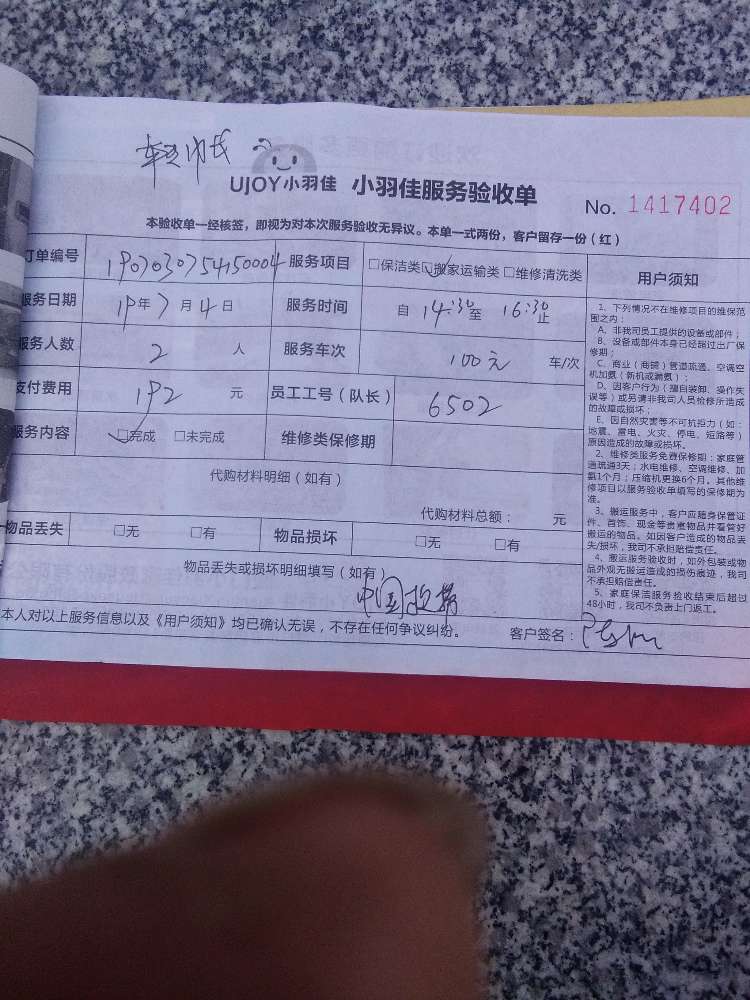 UJOY小羽佳 小羽佳服务验收单
No. 1417402
本验收单一经核签，即视为对本次服务验收无异议。本单一式两份，客户留存一份（红）
订单编号 1907030754150004 服务项目 □保洁类 ☑搬家运输类 □维修清洗类
服务日期 19年7月4日 服务时间 自 14:30 至 16:30 止
服务人数 2 人 服务车次 100元 车/次
支付费用 192 元 员工工号（队长） 6502
服务内容 ☑完成 □未完成 维修类保修期
代购材料明细（如有）
代购材料总额： 元
物品丢失 □无 □有 物品损坏 □无 □有
物品丢失或损坏明细填写（如有）
中国
本人对以上服务信息以及《用户须知》均已确认无误，不存在任何争议纠纷。 客户签名：
用户须知
1、下列情况不在维修项目的维保范
围之内：
A、非我司员工提供的设备或部件；
B、设备或部件本身已经超过出厂保
修期；
C、商业（商铺）管道疏通、空调空
机加氨（新机或漏氨）；
D、因客户行为（擅自装卸、操作失
误等）或另请非我司人员检修所造成
的故障或损坏；
E、因自然灾害等不可抗力（如：
地震、雷电、火灾、停电、短路等）
原因造成的故障或损坏。
2、维修类服务免费保修期：家庭管
道疏通3天；水电维修、空调维修、加
氨1个月；压缩机更换6个月。其他维
修项目以服务验收单填写的保修期为
准。
3、搬运服务中，客户应随身保管证
件、首饰、现金等贵重物品并看管好
搬运的物品。如因客户造成的物品丢
失/损坏，我司不承担赔偿责任。
4、搬运服务验收时，如外包装或物
品外观无搬运造成的损伤痕迹，我司
不承担赔偿责任。
5、家庭保洁服务验收结束后超过
48小时，我司不负责上门返工。